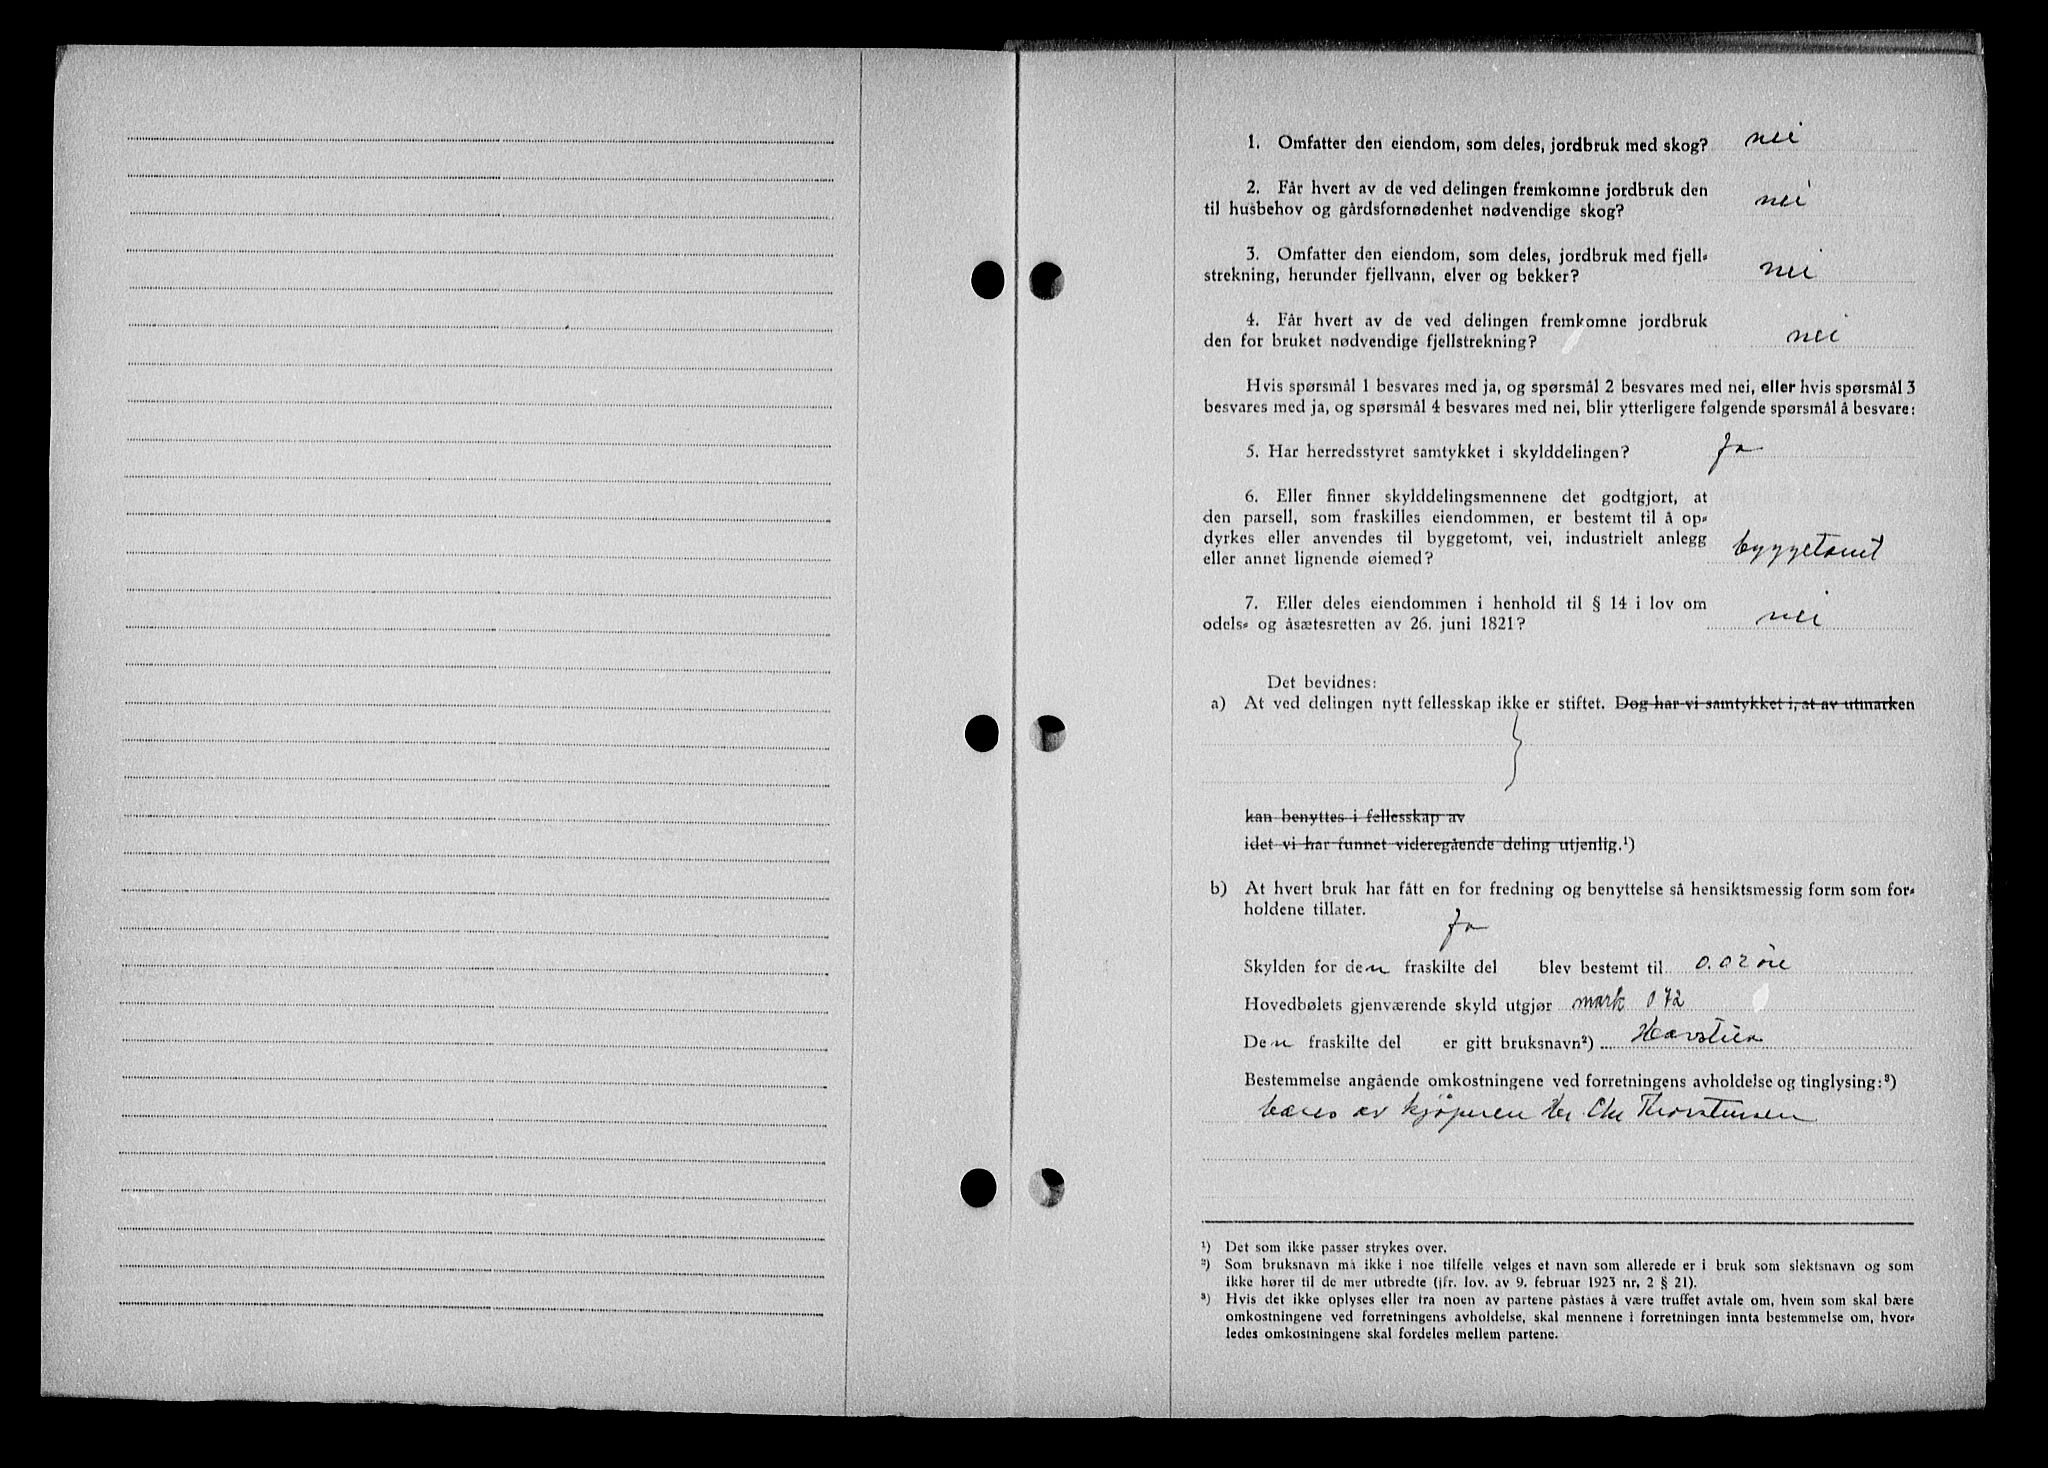 1. Omfatter den eiendom, som deles, jordbruk med skog? nei
2. Får hvert av de ved delingen fremkomne jordbruk den
til husbehov og gårdsfornødenhet nødvendige skog? nei
3. Omfatter den eiendom, som deles, jordbruk med fjell-
strekning, herunder fjellvann, elver og bekker? nei
4. Får hvert av de ved delingen fremkomne jordbruk
den for bruket nødvendige fjellstrekning? nei
Hvis spørsmål 1 besvares med ja, og spørsmål 2 besvares med nei, eller hvis spørsmål 3
besvares med ja, og spørsmål 4 besvares med nei, blir ytterligere følgende spørsmål å besvare:
5. Har herredsstyret samtykket i skylddelingen? Ja
6. Eller finner skylddelingsmennene det godtgjort, at
den parsell, som fraskilles eiendommen, er bestemt til å op-
dyrkes eller anvendes til byggetomt, vei, industrielt anlegg
eller annet lignende øiemed? byggetomt
7. Eller deles eiendommen i henhold til § 14 i lov om
odels- og åsætesretten av 26. juni 1821? nei
Det bevidnes:
a) At ved delingen nytt fellesskap ikke er stiftet. Dog har vi samtykket i, at av utmarken
kan benyttes i fellesskap av
idet vi har funnet videregående deling utjenlig.¹)
b) At hvert bruk har fått en for fredning og benyttelse så hensiktsmessig form som for-
holdene tillater.
Ja
Skylden for den fraskilte del blev bestemt til 0.02 öre
Hovedbølets gjenværende skyld utgjør mark 0 72
Den fraskilte del er gitt bruksnavn²)
Bestemmelse angående omkostningene ved forretningens avholdelse og tinglysing:³)
bæres av kjöperen Hr Chr Thorstensen
¹) Det som ikke passer strykes over.
²) Som bruksnavn må ikke i noe tilfelle velges et navn som allerede er i bruk som slektsnavn og som
ikke hører til de mer utbredte (jfr. lov. av 9. februar 1923 nr. 2 § 21).
³) Hvis det ikke oplyses eller fra noen av partene påståes å være truffet avtale om, hvem som skal bære
omkostningene ved forretningens avholdelse, skal mennene i forretningen innta bestemmelse om, hvor-
ledes omkostningene skal fordeles mellem partene.